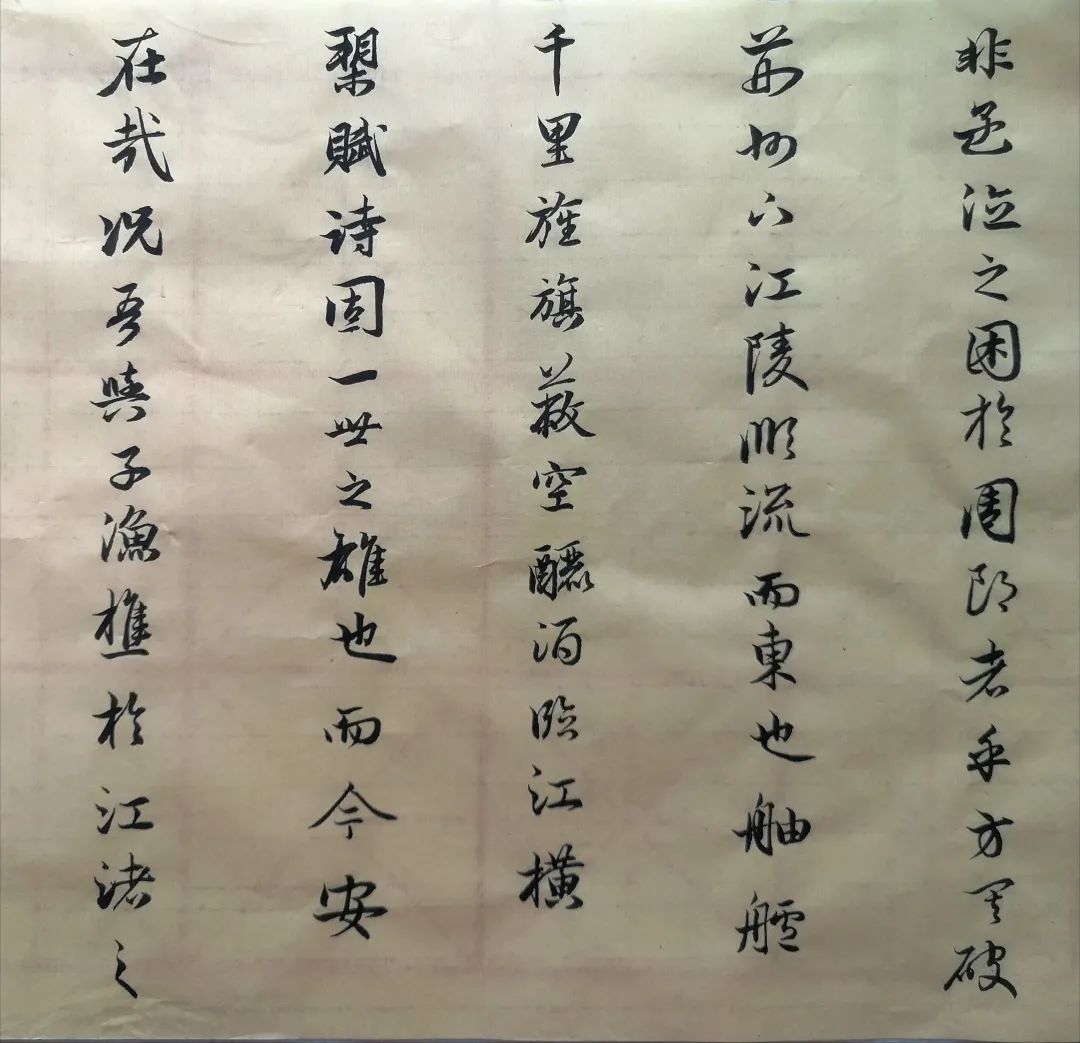 非孟德之困於周郎者乎方其破
荊州下江陵順流而東也舳艫
千里旌旗蔽空釃酒臨江橫
槊賦詩固一世之雄也而今安
在哉况吾與子漁樵於江渚之